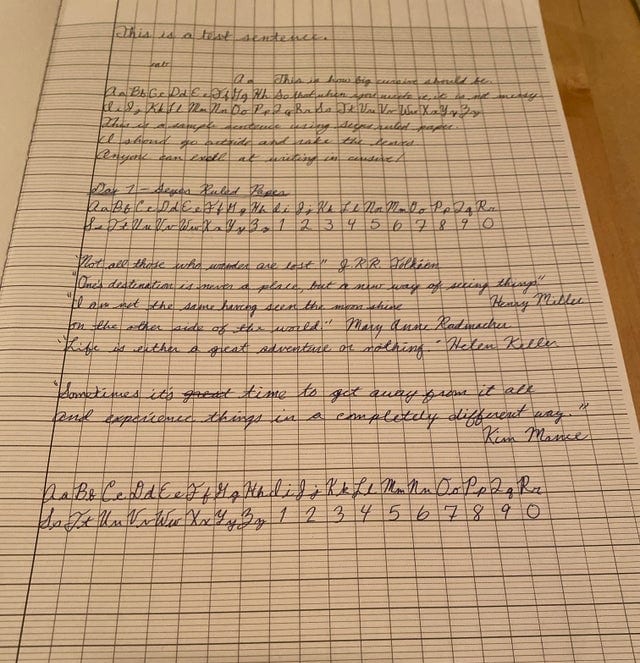 This is a test sentence.
Aa This is how big cursive should be.
Aa Bb Cc Dd Ee Ff Gg Hh So that when you write it, it is not messy
Ii Jj Kk Ll Mm Nn Oo Pp Qq Rr Ss Tt Uu Vv Ww Xx Yy Zz
This is a sample sentence using Seyes ruled paper.
I should go outside and rake the leaves
Anyone can excell at writing in cursive!
Day 1 - Seyes Ruled Paper
Aa Bb Cc Dd Ee Ff Gg Hh Ii Jj Kk Ll Nn Mm Oo Pp Qq Rr
Ss Tt Uu Vv Ww Xx Yy Zz 1 2 3 4 5 6 7 8 9 0
"Not all those who wander are lost" J.R.R. Tolkien
"One's destination is never a place, but a new way of seeing things"
Henry Miller
"I am not the same having seen the moon shine
on the other side of the world." Mary Anne Radmacher
"Life is either a great adventure or nothing." Helen Keller
"Sometimes it's great time to get away from it all
and experience things in a completely different way."
Kim
Aa Bb Cc Dd Ee Ff Gg Hh Ii Jj Kk Ll Mm Nn Oo Pp Qq Rr
Ss Tt Uu Vv Ww Xx Yy Zz 1 2 3 4 5 6 7 8 9 0